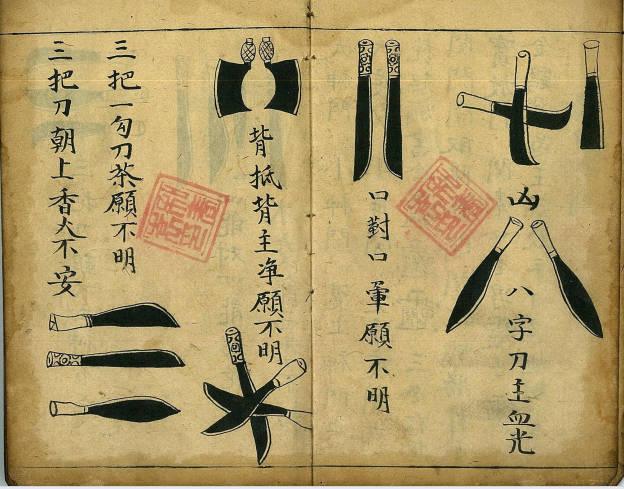 凶
八字刀主血光
口對口葷願不明
背抵背主净願不明
三把一勾刀茶願不明
三把刀朝上香火不安